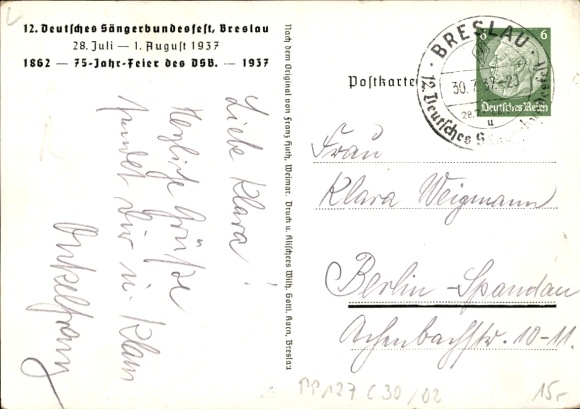 12. Deutsches Sängerbundesfest, Breslau
28. Juli — 1. August 1937
1862 — 75-Jahr-Feier des DSB. — 1937
Liebe Klara!
Herzliche Grüße
sendet Dir u. Klaus
Onkel Franz
Nach dem Original von Franz Huth, Weimar. Druck u. Klischees Wilh. Gottl. Korn, Breslau
Postkarte
BRESLAU
30. 7. 37
12. Deutsches
28.7.
u
6 6
Deutsches Reich
Frau
Klara Weigmann
Berlin-Spandau
Achenbachstr. 10-11.
PP127 C30/02
15,-